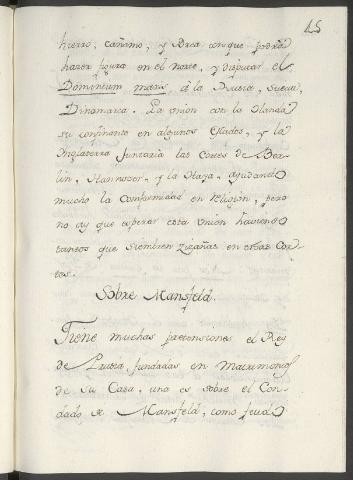 45
hierro, cañamo, y Brea con que podrá
hazer figura en el norte, y disputar el
Dominium maris, á la Rusia, Suecia,
Dinamarca. La union con la Olanda
su confinante en algunos estados, y la
Inglaterra juntaria las Cortes de Ber-
lin, Hannover, y la Haya, ayudando
mucho la Conformidad en religion, pero
no ay que esperar esta union haviendo
tantos que siembren zizañas en estas Cor-
tes.
Sobre Mansfeld.
Tiene muchas pretensiones el Rey
de Prusia, fundadas en Matrimonios
de su Casa, una es sobre el Con-
dado de Mansfeld, como feudo